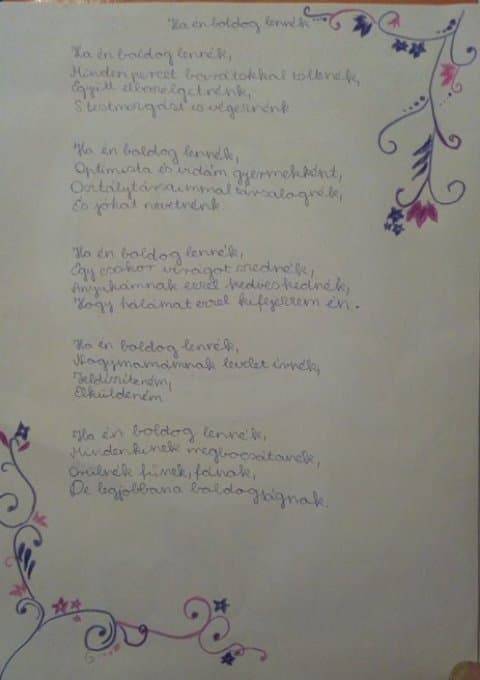 Ha én boldog lennék
Ha én boldog lennék,
Minden percét barátokkal töltenék,
Együtt elbeszélgetnénk,
S testmozgást is végeznénk
Ha én boldog lennék,
Optimista és vidám gyermekként,
Osztálytársaimmal társalognék,
És jókat nevetnénk
Ha én boldog lennék,
Egy csokor virágot szednék,
Anyukámnak ezzel kedveskednék,
Hogy hálámat ezzel kifejezzem én.
Ha én boldog lennék,
Nagymamámnak levelet írnék,
Feldíszíteném,
Elküldeném
Ha én boldog lennék,
Mindenkinek megbocsátanék,
Örülnék fűnek, fának,
De legjobban a boldogságnak.